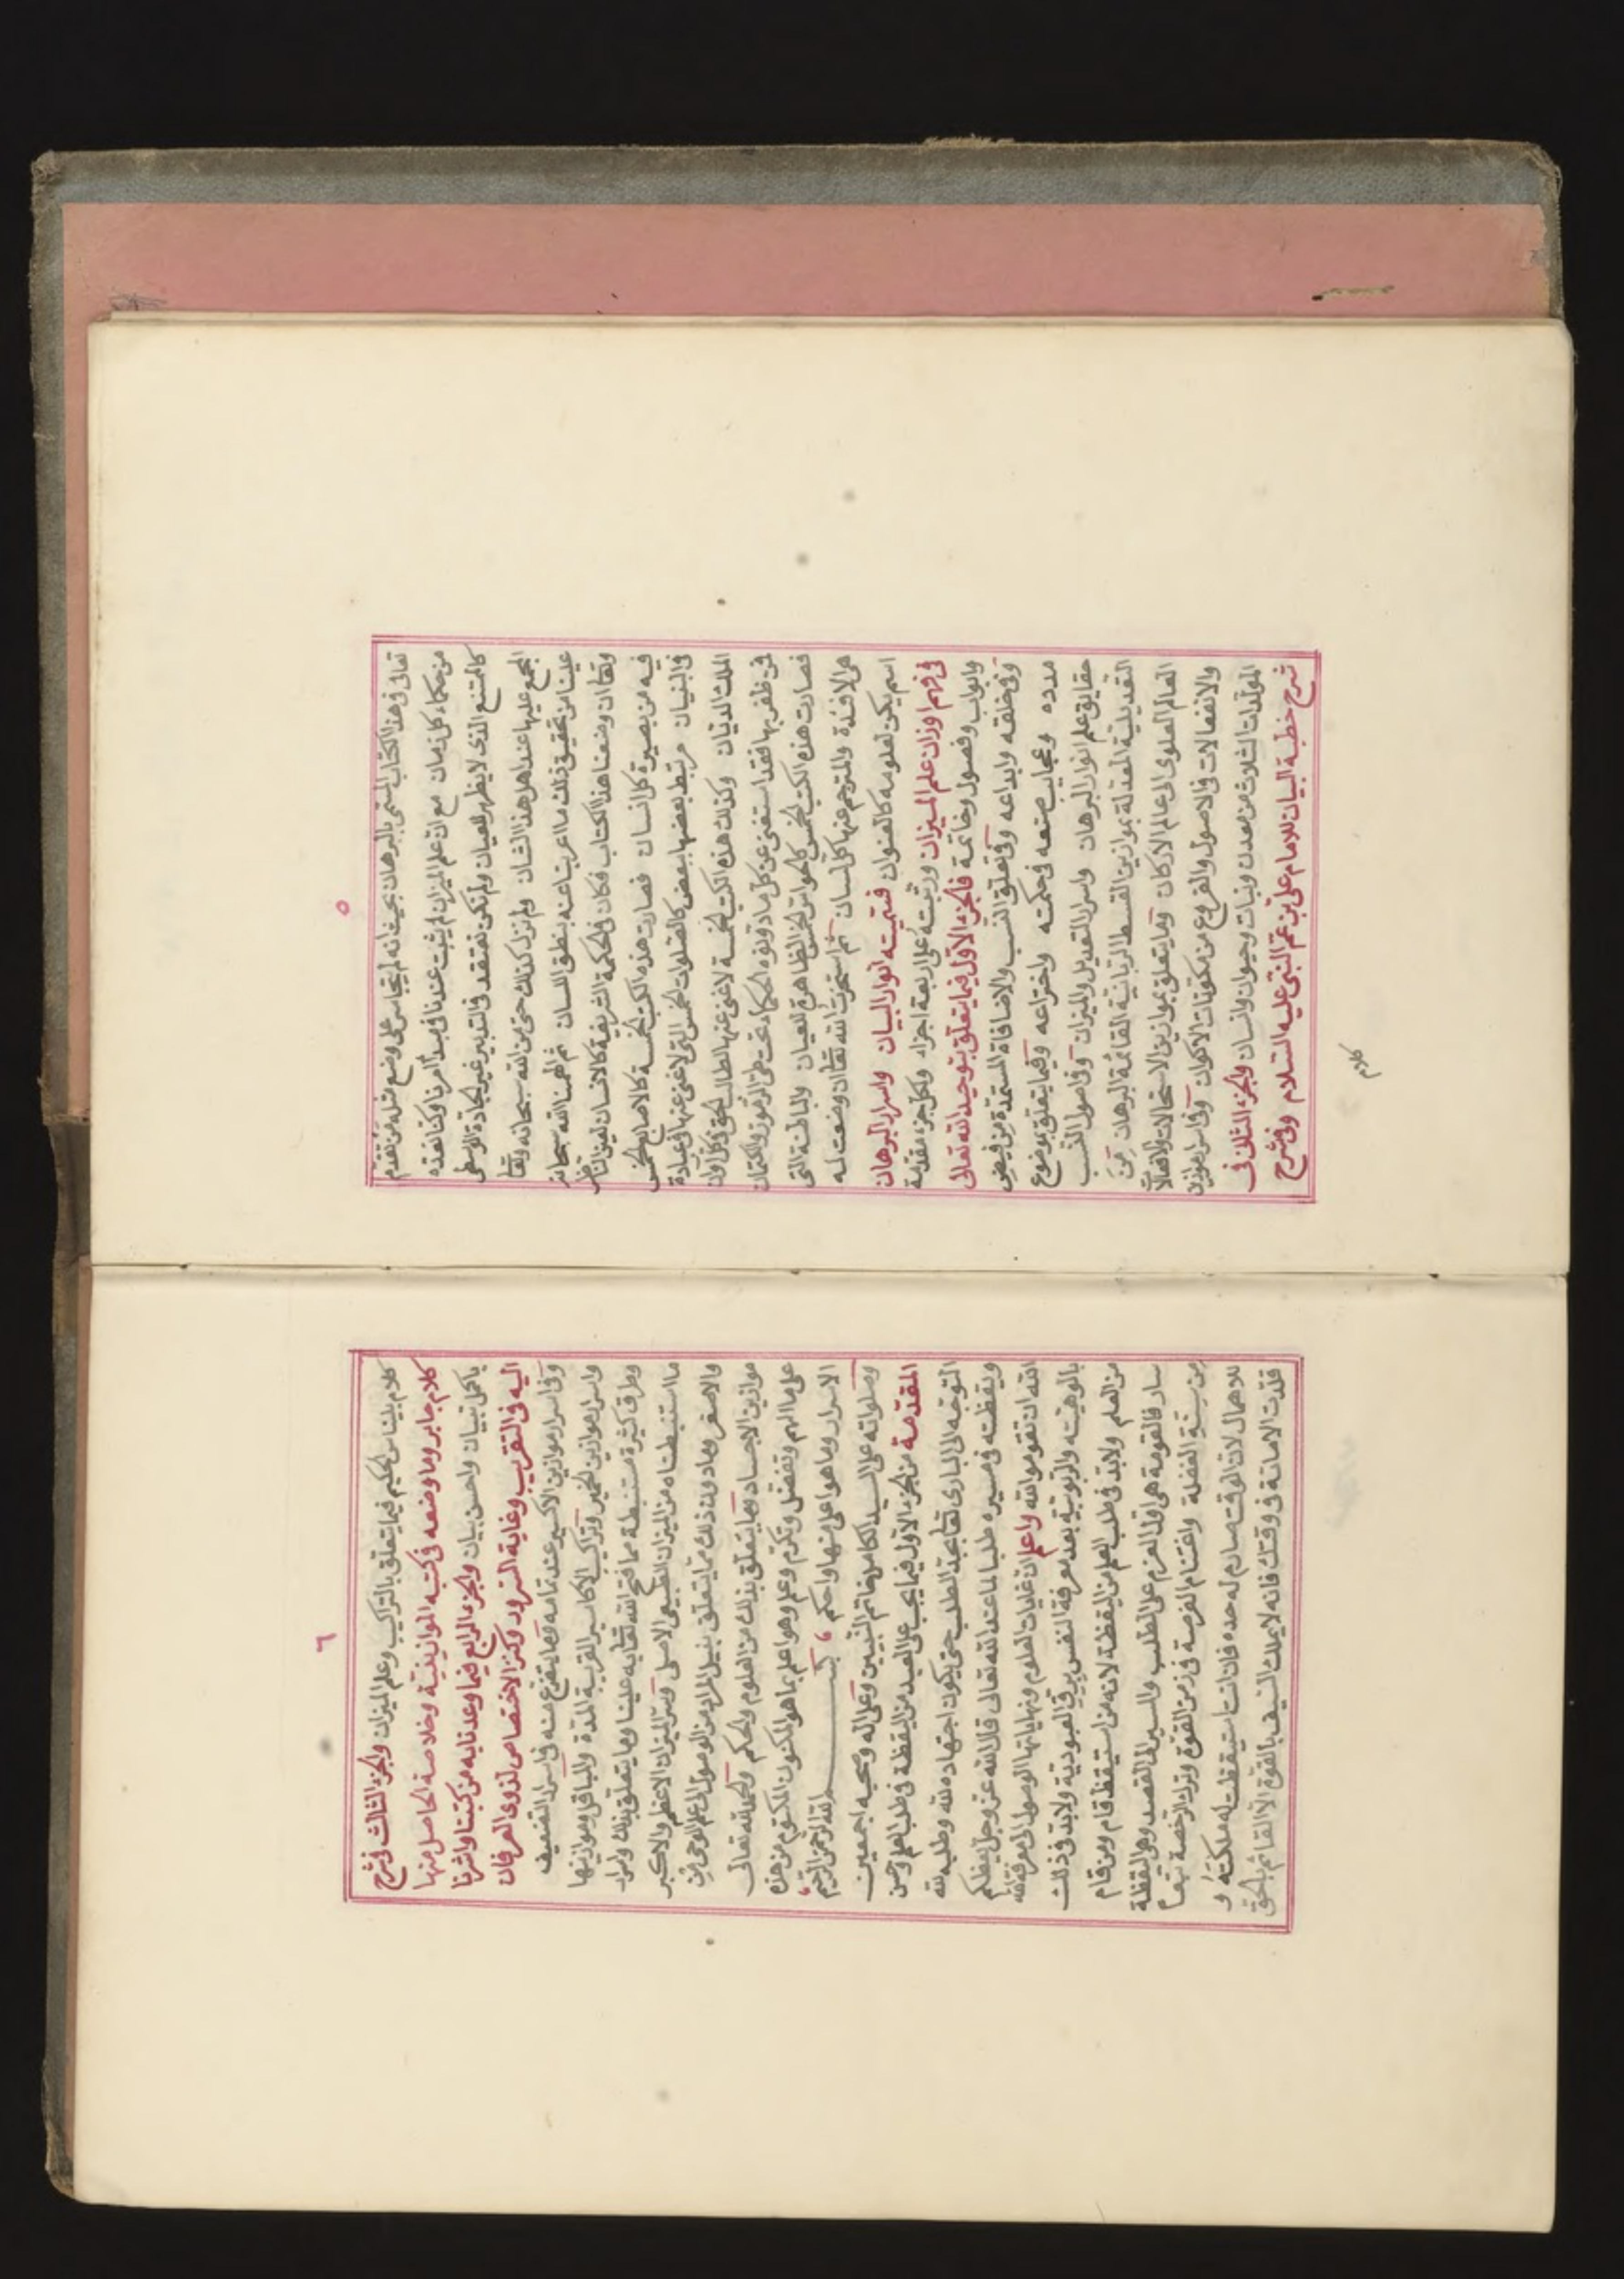 ٥
تعالى فى هذا الكتاب المسمى بالبرهان بحيث انه لم يتجاسر على وضع مثله من تقدم
من حكماء كل زمان مع ان علم الميزان لم يثبت عندنا فى مبدأ امرنا وكنا نعده
كالممتنع الذى لا يظهر للعيان ولم نكن نعتقد فى التدبير غير الجادة الوسطى
المجمع عليها عند اهل هذا الشان ولم نزل كذلك حتى من الله سبحانه وتعالى
علينا من تحقيق ذلك ما اعربنا عنه بنطق اللسان ثم الهمنا الله سبحانه
وتعالى ان وضعنا هذا الكتاب فكان فى الحكمة الشريفة كالانسان لعين الناظر
فيه من بصيرة كل انسان فصارت هذه الكتب الخمسة كالاصابع الخمس
فى البنيان مرتبط بعضها ببعض كالصلوات الخمس التى لا غنى عنها فى عبادة
الملك الديان وكذلك هذه الكتب الخمسة لا غنى عنها لطالب الحق فى كل اوان
فمن ظفر بها فقد استغنى عن كل ما دونوه الحكماء تحت طى الرموز والكتمان
فصارت هذه الكتب الخمس كالحواس الخمس الظاهرة للعيان والباطنة التى
هى الافئدة والمترجم عنها كل لسان ثم استخرت الله تعالى ان وضعت له
اسم يكون لعلومه كالعنوان فسميته انوار البيان واسرار البرهان
فى فهم اوزان علم الميزان ورتبته على اربعة اجزاء ولكل جزء مقدمة
وابواب وفصول وخاتمة فالجزء الاول فيما يتعلق بتوحيد الله تعالى
وفى خلقه وابداعه وفى تعلق النسب والاضافاة المستمدة من فيض
مدده وعجايب صنعه فى حكمته واختراعه وفيما يتعلق بموضوع
حقايق علم انوار البرهان واسرار التعديل والميزان وفى اصول النسب
التعديلية المعدلة بموازين القسط الربانية القائمة البرهان من
العالم العلوى الى عالم الاركان وما يتعلق بموازين الاستحالات والافعال
والانفعالات فى الاصول والفروع من مكونات الاكوان وفى اسرار موازين
المولدات الثلاث من معدن ونبات وحيوان وانسان والجزء الثانى فى
شرح خطبة البيان للامام على بن عم النبى عليه السلام وفى شرح
كلام
٦
كلام بليناس الحكيم فيما يتعلق بالتراكيب وعلم الميزان والجزء الثالث فى شرح
كلام جابر وما وضعه فى كتبه الموازينية وخلاصة الحاصل منها
باكمل تبيان واحسن بيان والجزء الرابع فيما وعدنا به من كتبنا واشرنا
اليه فى التقريب وغاية السرور وكنز الاختصاص لذوى العرفان
وفى اسرار موازين الاكسير عند تمامه وما يتفرع منه فى اسرار التضعيف
واسرار موازين الخمير وتراكيب الاكاسير القريبة المدة والباقى وموازينها
وطرق كثيرة مستنبطة مما فتح الله تعالى به علينا وما يتعلق بذلك واسرار
ما استنبطناه من الميزان الطبيعى الاصلى وسر الميزان الاعظم والاكبر
والاصغر وما دون ذلك مما يتعلق بنيل المراد من الوصول الى علم الوحى من
موازين الاجساد وما يتعلق بذلك من العلوم والحكم والحمد لله تعالى
على ما الهم وتفضل وتكرم وعلم وهو اعلم بما هو المكنون المكتوم من هذه
الاسرار وما هو اعلى منها واحكم بسم الله الرحمن الرحيم
وصلواته على السيد الكامل خاتم النبيين وعلى اله وصحبه اجمعين
المقدمة من الجزء الاول فيما يجب على العبد من اليقظة فى طلب العلم وحسن
التوجه الى البارى تعالى بجد الطلب حتى يكون اجتهاده لله وطلبه لله
ويقظته فى مسيره طلبا لما عند الله تعالى قال الله عز وجل يعظكم
الله ان تقوموا لله واعلم ان غايات العلوم ونهاياتها الوصول الى معرفة الله
بالوهيته والربوبية بعد معرفة النفس برق العبودية ولابد فى ذلك
من العلم ولابد فى طلب العلم من اليقظة لانه من استيقظ قام ومن قام
سار فالقومة هى اول العزم على الطلب والسير الى القصد وهى اليقظة
من سنة الغفلة واغتنام الفرصة فى زمن القوة وترك الرخصة بتمام
للاهمال لان الوقت صارم له حده فان انت استيقظت له ملكته و
قلدت الامانة فى وقتك فانه لا يملك السيف بالقوة الا القائم بالحق